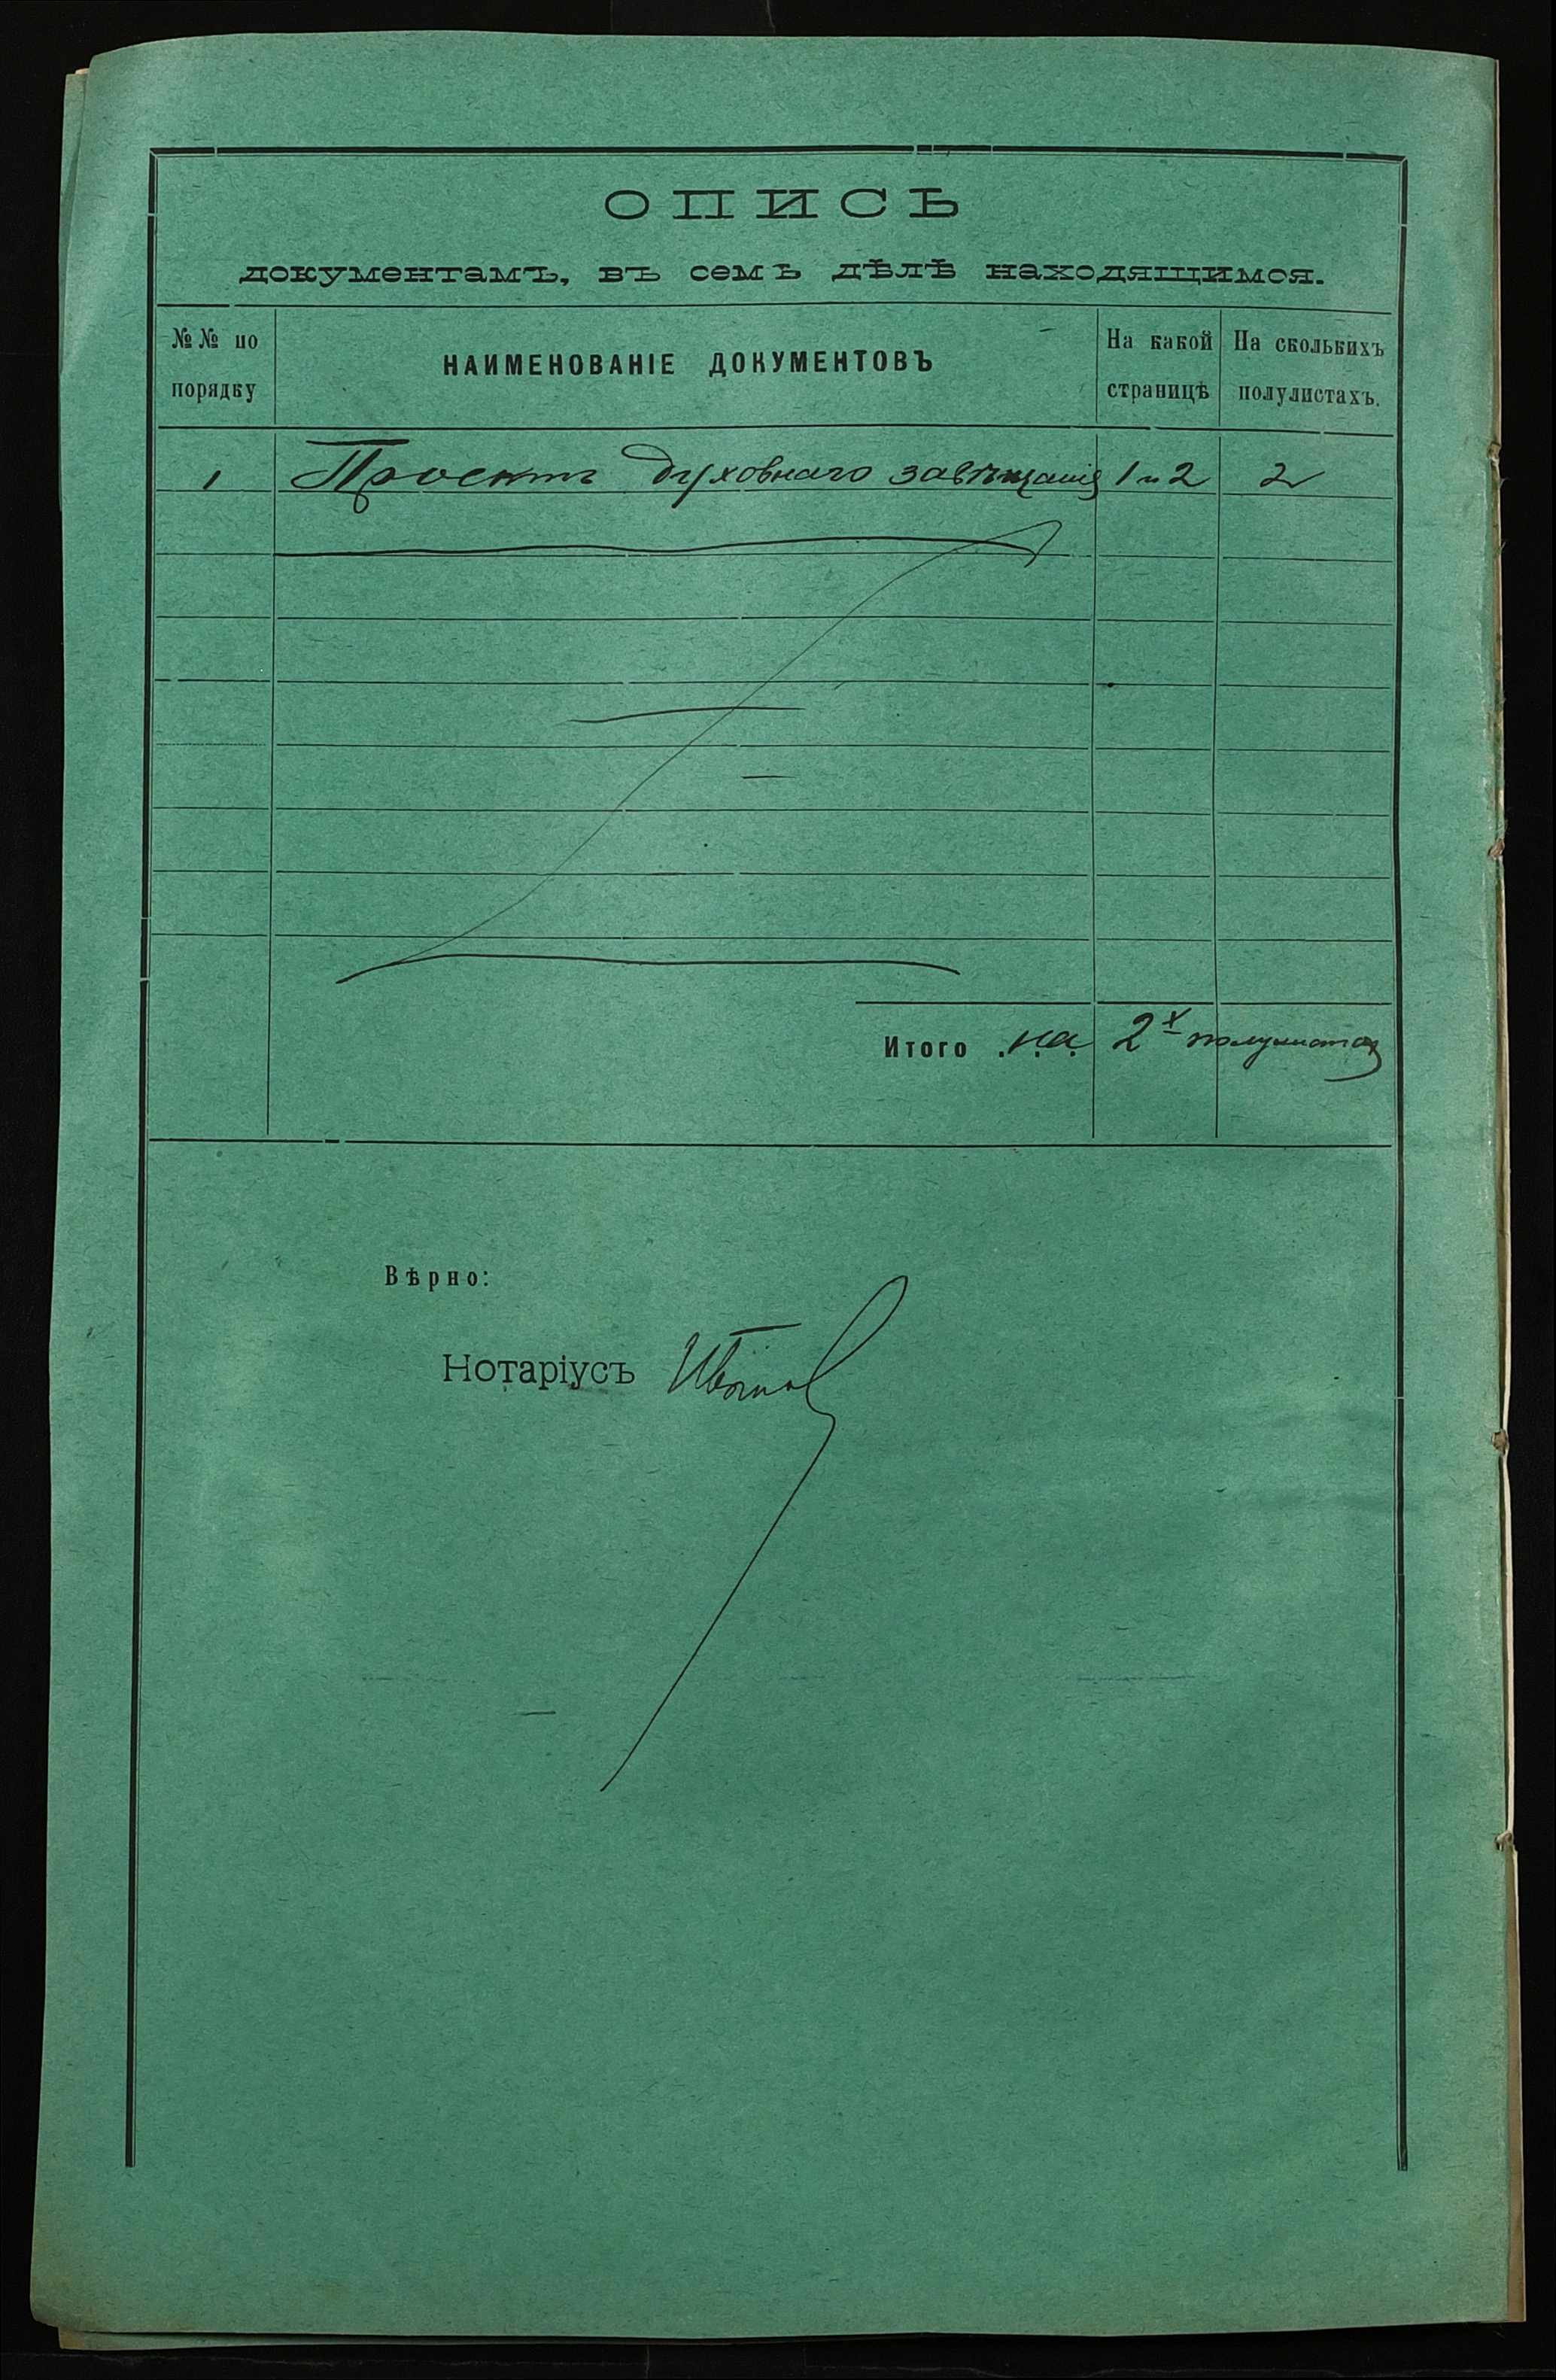 ОПИСЬ
документамъ, въ семъ дѣлѣ находящимся.
№№ по порядку
НАИМЕНОВАНІЕ ДОКУМЕНТОВЪ
На какой страницѣ
На сколькихъ полулистахъ.
1 Проектъ духовнаго завѣщанія 1 и 2 2
Итого на 2х полулистах
Вѣрно:
Нотаріусъ